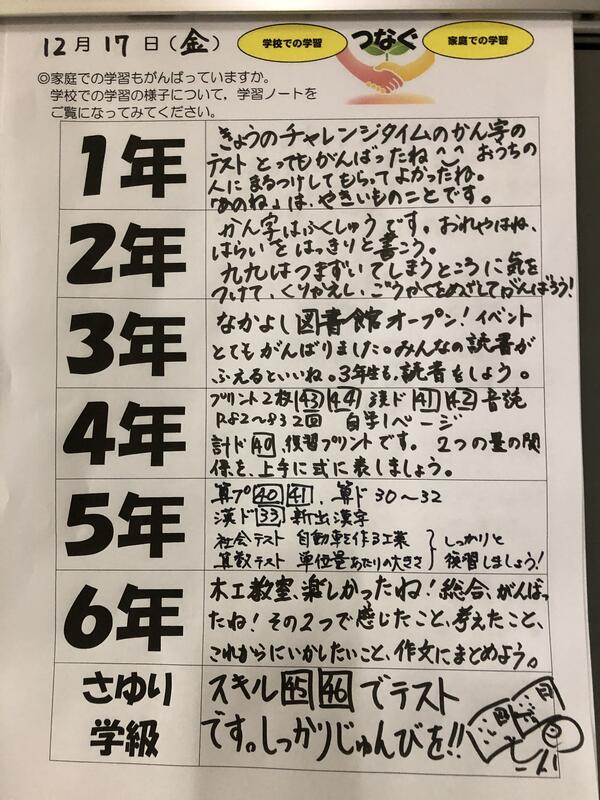 12月17日(金)
学校での学習
つなぐ
家庭での学習
◎家庭での学習もがんばっていますか。
学校での学習の様子について,学習ノートを
ご覧になってみてください。
1年
きょうのチャレンジタイムのかん字の
テストとってもがんばったね おうちの
人にまるつけしてもらってよかったね。
「めのね」は、やきいものことです。
2年
かん字はふくしゅうです。おれやはね、
はらいをはっきりと書こう。
九九はつまずいてしまうところに気を
つけて、くりかえし、ごうかくをめざしてがんばろう!
3年
なかよし図書館オープン!イベント
とてもがんばりました。みんなの読書が
ふえるといいね。3年生も、読書をしよう。
4年
プリント2枚 43 44 漢ド 41 42 音読
P.82~83 2回 自学1ページ
計ド 40 、復習プリントです。 2つの量の関
係を、上手に式に表しましょう。
5年
算プ 40 41 、算ド 30~32
漢ド 33 新出漢字
社会テスト 自動車を作る工業
算数テスト 単位量あたりの大きさ
しっかりと
復習しましょう!
6年
木工教室、楽しかったね!総合、がんばっ
たね!その2つで感じたこと、考えたこと、
これからにいかしたいこと、作文にまとめよう。
さゆり
学級
スキル 45 46 でテスト
です。しっかりじゅんびを!!